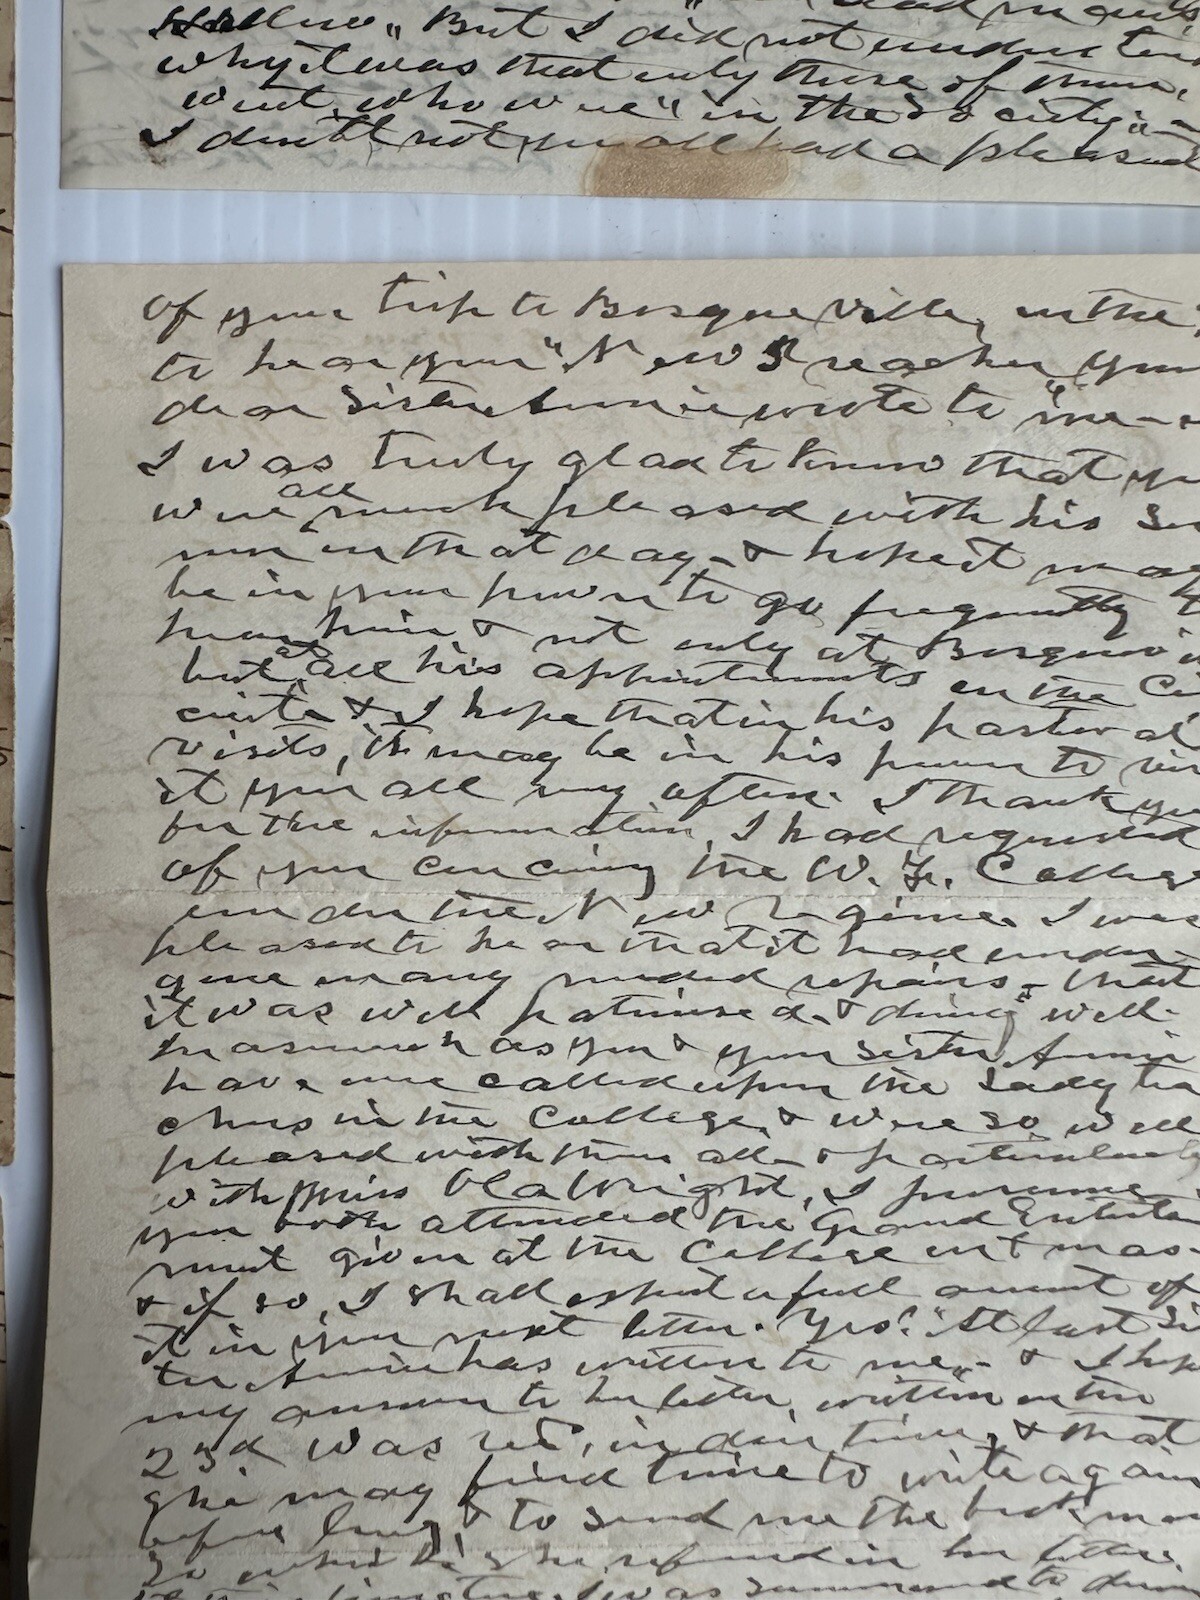 But I did not
why it was that only those of them,
went, who were "in the society" -
I doubt not you all had a pleasant
of your trip to Bosqueville, on the
to hear your "News" reacher your
dear Sister Annie wrote to me -
I was truly glad to know that
were all much pleased with his Ser
mon on that day - & hope it may
be in your power to go frequently
hear him & not only at
but at all his appointments on the Cir
cuit & I hope that in his pastoral
visits, it may be in his power to vis
it you all very often. I thank you
for the information, I had requested
of you concerning the W. F. College
under the New regime. I was
pleased to hear that it had under
gone many needed repairs - that
it was well patronised & doing well.
Inasmuch as you & your Sister Annie
have once called upon the Lady tea
chers in the College, & were so well
pleased with them all - & particularly
with Miss Ola Wright, I presume
you both attended the Grand Entertain
ment given at the College on Xmas -
& if so, I shall expect a full account of
it in your next letter. Yes! "At last Sis
ter Annie has written to me" - & I hope
my answer to her letter, written on the
23d was rec'd, in due time, & that
she may find time to write again
before long, & to send me the
she referred in her letter.
I was summoned to